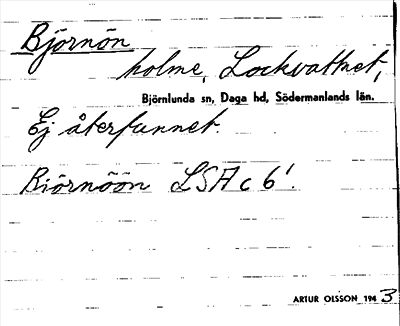 Björnön
holme, Lockvattnet,
Björnlunda sn, Daga hd, Södermanlands län.
Ej återfunnet.
Biörnöön LSA c 6¹.
ARTUR OLSSON 1943